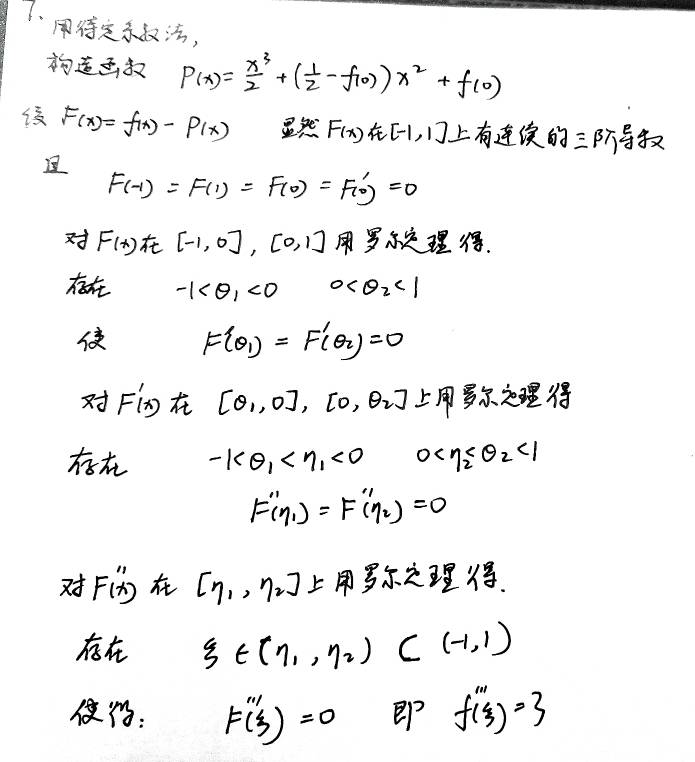 7. 用待定系数法,
构造函数 P(x)= x³/2 + (1/2 - f(0)) x² + f(0)
使 F(x)= f(x) - P(x) 显然 F(x)在[-1,1]上有连续的三阶导数
且 F(-1) = F(1) = F(0) = F'(0) = 0
对F(x)在 [-1,0], [0,1] 用罗尔定理得.
存在 -1<θ₁<0 0<θ₂<1
使 F'(θ₁) = F'(θ₂)=0
对F'(x)在 [θ₁,0], [0,θ₂]上用罗尔定理得
存在 -1<θ₁<η₁<0 0<η₂≤θ₂<1
F''(η₁) = F''(η₂) =0
对F''(x)在 [η₁, η₂]上用罗尔定理得.
存在 ξ∈(η₁, η₂) ⊂ (-1,1)
使得: F'''(ξ) = 0 即 f'''(ξ)=3